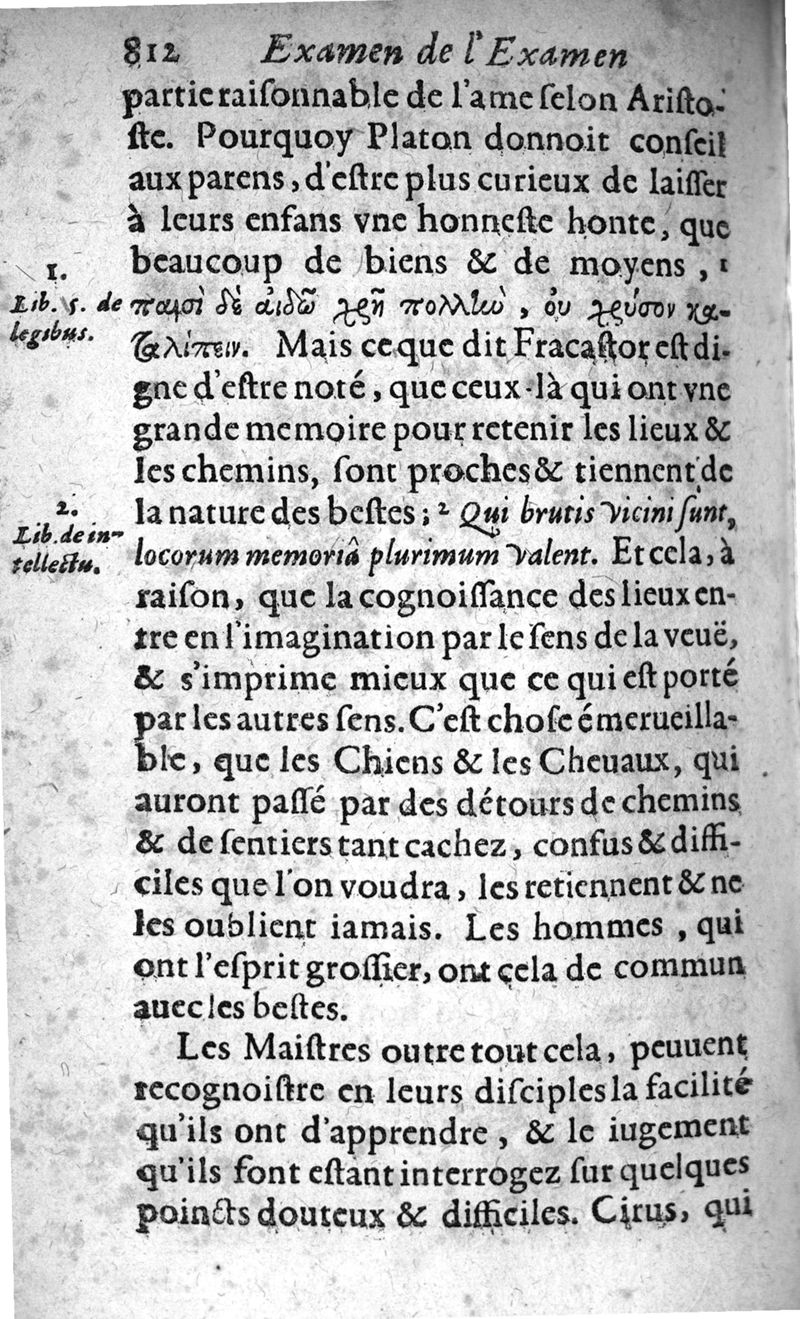 812 Examen de l'Examen
partie raiſonnable de l'ame ſelon Ariſto-
ſte. Pourquoy Platon donnoit conſeil
aux parens, d'eſtre plus curieux de laiſſer
à leurs enfans vne honneſte honte, que
beaucoup de biens & de moyens, 1
1.
Lib. 5. de
legibus.
παισὶ δὲ αἰδῶ χρὴ πολλὴν, οὐ χρύσον κα-
ταλίπειν. Mais ce que dit Fracaſtor eſt di-
gne d'eſtre noté, que ceux-là qui ont vne
grande memoire pour retenir les lieux &
les chemins, ſont proches & tiennent de
la nature des beſtes; 2 Qui brutis vicini ſunt,
2.
Lib. de in-
tellectu.
locorum memoriâ plurimum valent. Et cela, à
raiſon, que la cognoiſſance des lieux en-
tre en l'imagination par le ſens de la veuë,
& s'imprime mieux que ce qui eſt porté
par les autres ſens. C'eſt choſe émerueilla-
ble, que les Chiens & les Cheuaux, qui
auront paſſé par des détours de chemins
& de ſentiers tant cachez, confus & diffi-
ciles que l'on voudra, les retiennent & ne
les oublient iamais. Les hommes, qui
ont l'eſprit groſſier, ont cela de commun
auec les beſtes.
Les Maiſtres outre tout cela, peuuent
recognoiſtre en leurs diſciples la facilité
qu'ils ont d'apprendre, & le iugement
qu'ils font eſtant interrogez ſur quelques
poincts douteux & difficiles. Cirus, qui